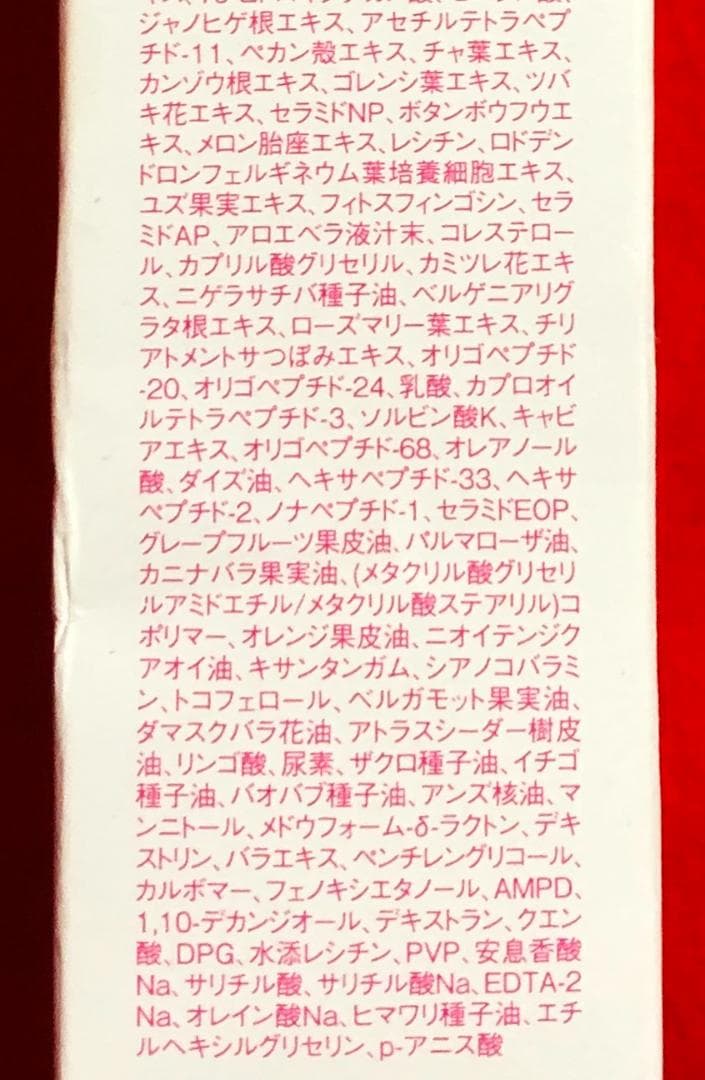 ジャノヒゲ根エキス、アセチルテトラペプ
チド-11、ペカン殻エキス、チャ葉エキス、
カンゾウ根エキス、ゴレンシ葉エキス、ツバ
キ花エキス、セラミドNP、ボタンボウフウエ
キス、メロン胎座エキス、レシチン、ロドデン
ドロンフェルギネウム葉培養細胞エキス、
ユズ果実エキス、フィトスフィンゴシン、セラ
ミドAP、アロエベラ液汁末、コレステロー
ル、カプリル酸グリセリル、カミツレ花エキ
ス、ニゲラサチバ種子油、ベルゲニアリグ
ラタ根エキス、ローズマリー葉エキス、チリ
アトメントサつぼみエキス、オリゴペプチド
-20、オリゴペプチド-24、乳酸、カプロオイ
ルテトラペプチド-3、ソルビン酸K、キャビ
アエキス、オリゴペプチド-68、オレアノール
酸、ダイズ油、ヘキサペプチド-33、ヘキサ
ペプチド-2、ノナペプチド-1、セラミドEOP、
グレープフルーツ果皮油、パルマローザ油、
カニナバラ果実油、(メタクリル酸グリセリ
ルアミドエチル/メタクリル酸ステアリル)コ
ポリマー、オレンジ果皮油、ニオイテンジク
アオイ油、キサンタンガム、シアノコバラミ
ン、トコフェロール、ベルガモット果実油、
ダマスクバラ花油、アトラスシーダー樹皮
油、リンゴ酸、尿素、ザクロ種子油、イチゴ
種子油、バオバブ種子油、アンズ核油、マ
ンニトール、メドウフォーム-δ-ラクトン、デキ
ストリン、バラエキス、ペンチレングリコール、
カルボマー、フェノキシエタノール、AMPD、
1,10-デカンジオール、デキストラン、クエン
酸、DPG、水添レシチン、PVP、安息香酸
Na、サリチル酸、サリチル酸Na、EDTA-2
Na、オレイン酸Na、ヒマワリ種子油、エチ
ルヘキシルグリセリン、p-アニス酸